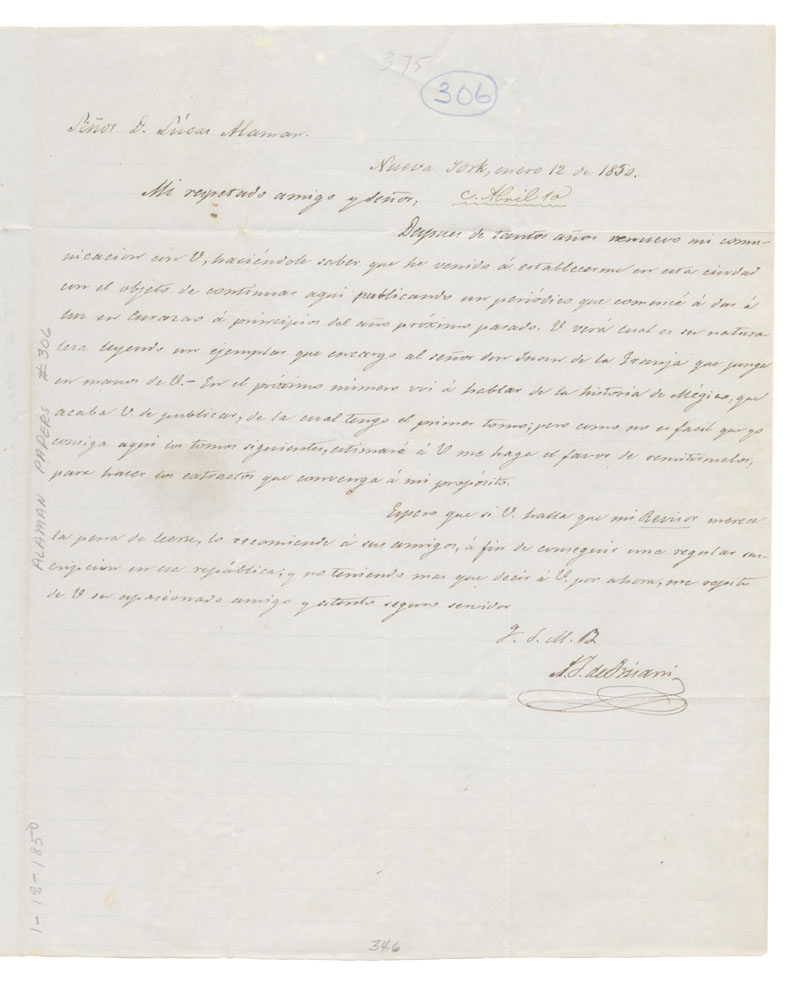 375
306
Señor D. Lúcas Alaman.
Nueva York, enero 12 de 1850.
Mi respetado amigo y señor,
c. Abril 10
Despues de tantos años renuevo mi comu-
nicacion con V, haciéndole saber que he venido á establecerme en esta ciudad
con el objeto de continuar aqui publicando un periódico que comencé á dar á
luz en Curazao á principios del año próximo pasado. V verá cual es su natura
leza leyendo un ejemplar que encargo al señor don Juan de la Granja que ponga
en manos de V.- En el próximo número voi á hablar de la historia de Mégico, que
acaba V. de publicar, de la cual tengo el primer tomo; pero como no es facil que yo
consiga aquí los tomos siguientes, estimaré á V me haga el favor de remitirmelos,
para hacer los extractos que convenga á mi propósito.
Espero que si V. halla que mi Revisor merece
la pena de leerse, lo recomiende á sus amigos, á fin de conseguir una regular sus-
cripcion en esa república; y no teniendo mas que decir á V. por ahora, me repito
de V su apasionado amigo y atento seguro servidor
Q. S. M. B.
A. J. de Irisarri
ALAMAN PAPERS #306
1-12-1850
346